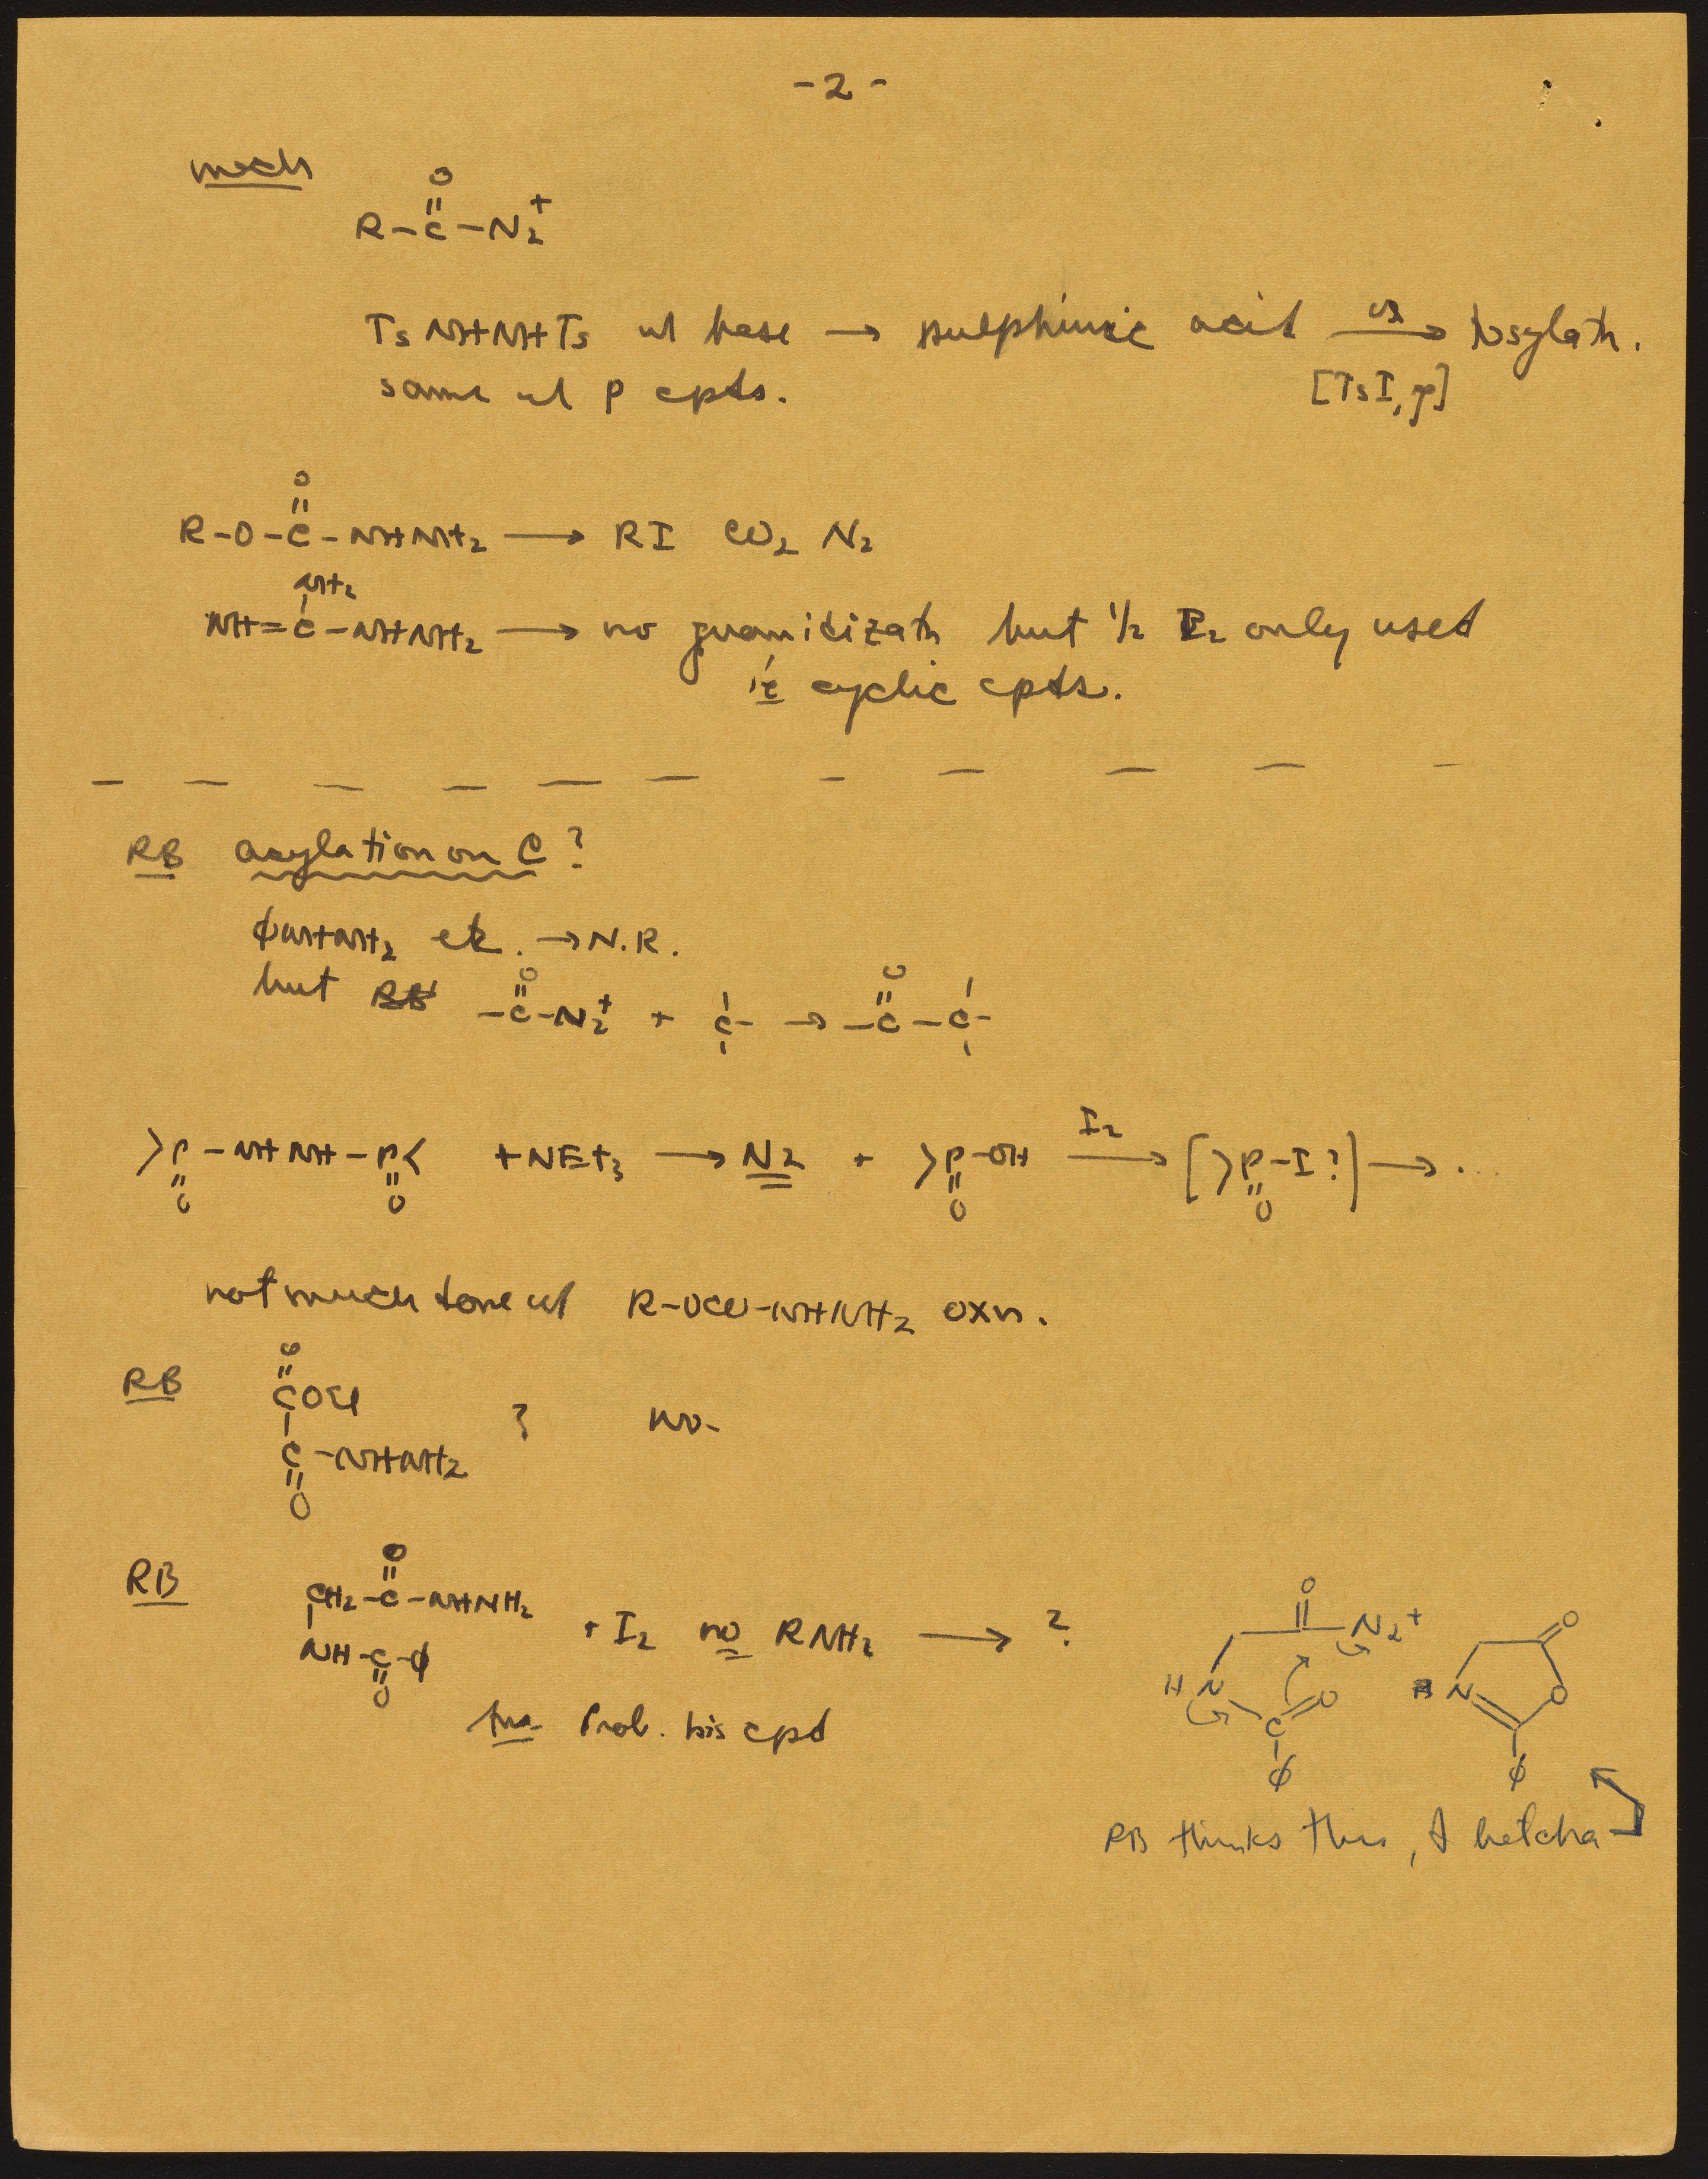 -2-
mech
O
R-C-N2+
TsNHNHTs w/ base → sulphinic acid ox→ tosylatn.
same w/ P cpds. [TsI, py]
O
R-O-C-NHNH2 → RI CO2 N2
NH2
NH=C-NHNH2 → no guanidizatn but 1/2 I2 only used
ie cyclic cpds.
RB acylation on C?
ϕNHNH2 etc. → N.R.
but
O O
-C-N2+ + C- → -C-C-
>P-NHNH-P< + NEt3 → N2 + >P-OH I2→ [>P-I?] → ...
O O O O
not much done w/ R-OCO-NHNH2 oxn.
O
RB COEt
? no-
C-NHNH2
O
O
RB CH2-C-NHNH2
+ I2 no RNH2 → ?
NH-C-ϕ
O
Ans. Prob. bis cpd
O
N2+ O
H N O N O
C
ϕ ϕ
RB thinks this, I betcha